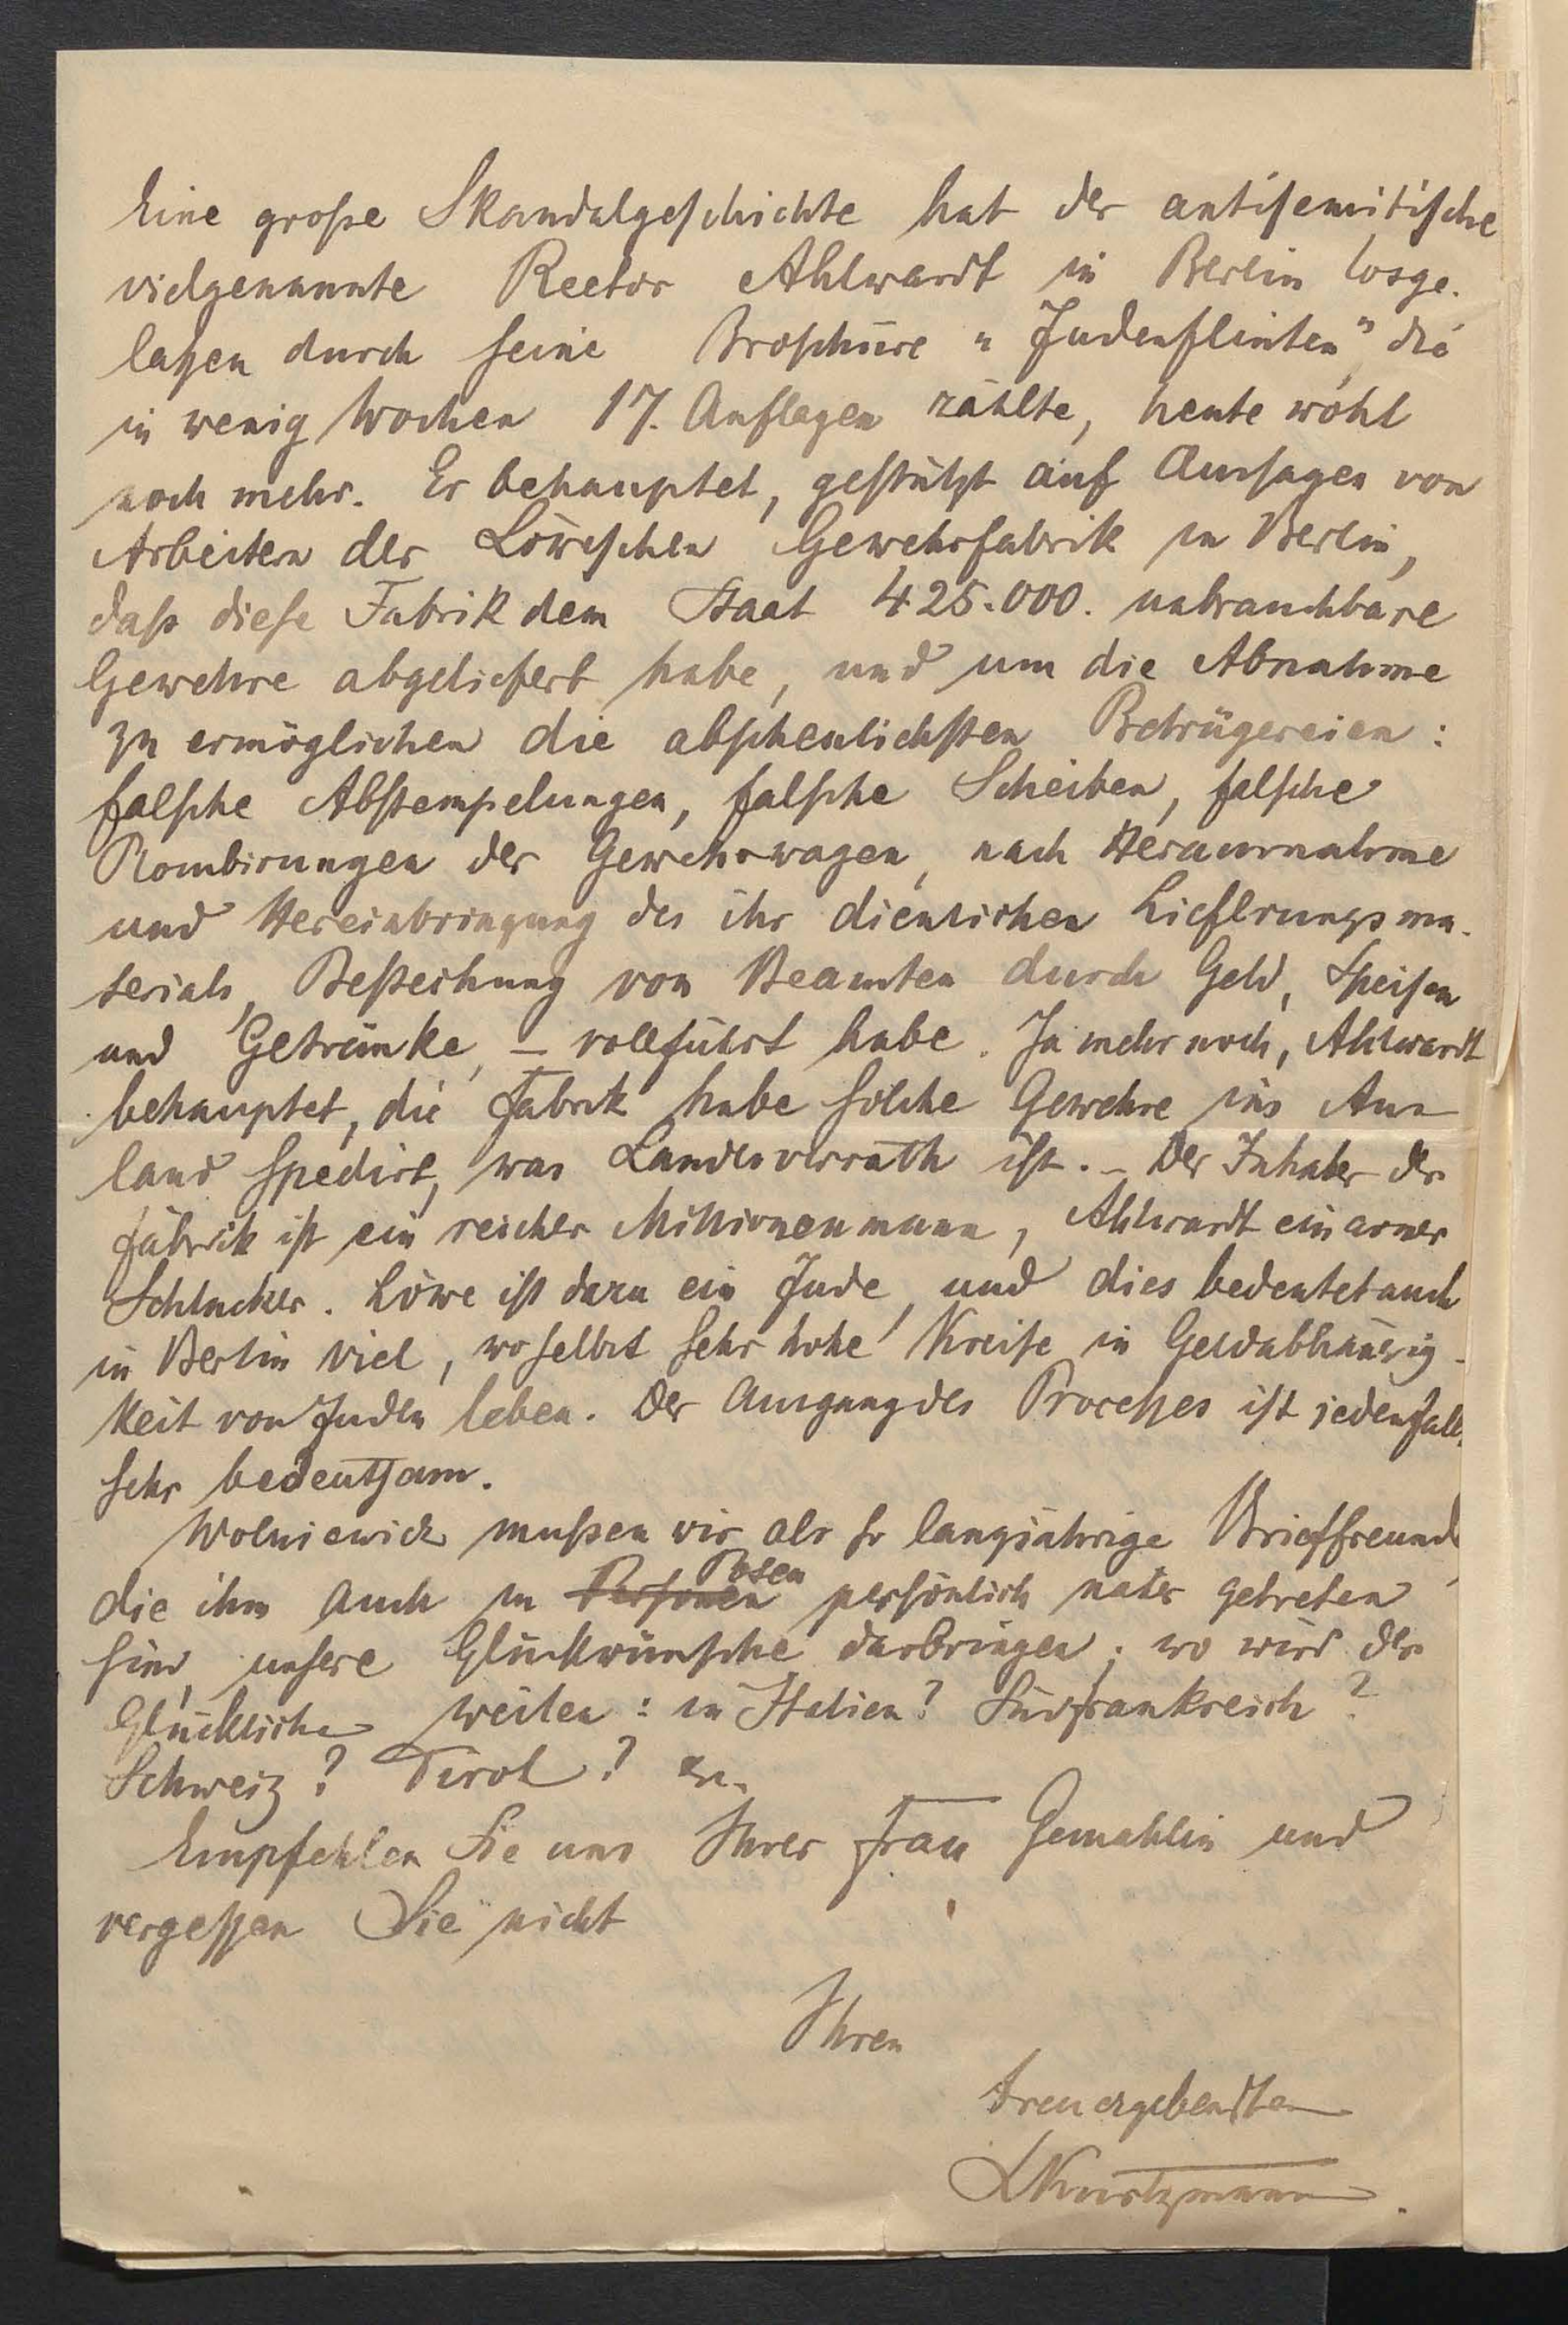 Eine große Skandalgeschichte hat der antisemitische
vielgenannte Rector Ahlwardt in Berlin losge-
laßen durch seine Broschüre "Judenflinten" die
in wenig Wochen 17. Auflagen zählte, heute wohl
noch mehr. Er behauptet, gestützt auf Aussagen von
Arbeitern der Löweschen Gewehrfabrik in Berlin,
daß diese Fabrik dem Staat 425.000. unbrauchbare
Gewehre abgeliefert habe, und um die Abnahme
zu ermöglichen die abscheulichsten Betrügereien:
falsche Abstempelungen, falsche Scheiben, falsche
Plombirungen der Gewehrwagen, nach Herausnahme
und Hereinbringung des ihr dienlichen Lieferungsma-
terials, Bestechung von Beamten durch Geld, Speisen
und Getränke, – vollführt habe. Ja mehr noch, Ahlwardt
behauptet, die Fabrik habe solche Gewehre ins Aus-
land spedirt, was Landesverrath ist. – Der Inhaber der
Fabrik ist ein reicher Millionenmann, Ahlwardt ein armer
Schlucker. Löwe ist dazu ein Jude, und dies bedeutet auch
in Berlin viel, woselbst sehr hohe Kreise in Geldabhängig-
keit von Juden leben. Der Ausgang des Proceßes ist jedenfalls
sehr bedeutsam.
Wolniewicz mußen wir als so langjährige Brieffreunde
die ihm auch in Posen persönlich näher getreten
sind, unsere Glückwünsche darbringen; wo wird der
Glückliche weilen: in Italien? Südfrankreich?
Schweiz? Tirol? etc.
Empfehlen Sie uns Ihrer Frau Gemahlin und
vergeßen Sie nicht
Ihren
treuergebensten
LKurtzmann.